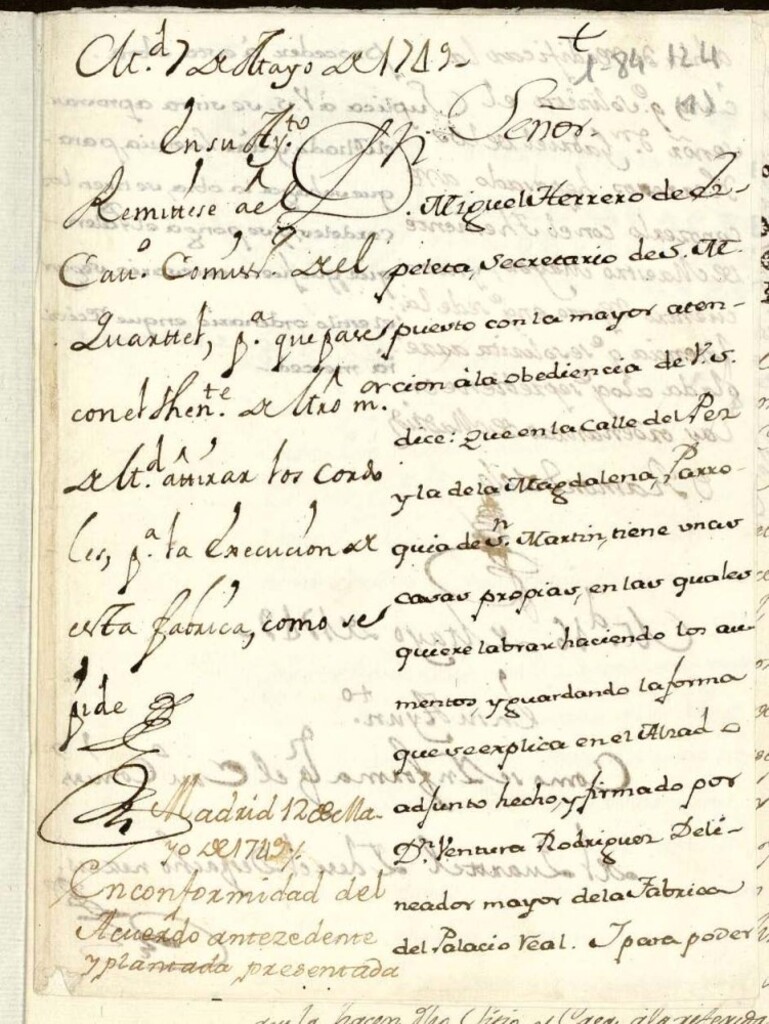 M.d 7 de Mayo de 1749.
En su Ay.to
Remittese a el
Cav.o Comiss.o del
Quarttel, p.a que pase
con el then.te de Mro m.or
de M.d a ttirar los corde
les, p.a la Execucion de
esta fabrica, como se
pide
Madrid 12 de Ma-
yo de 1749.
En conformidad del
Acuerdo antezedente
y plantada presentada
t
1 84 124
Señor.
D.n Miguel Herrero de Ez-
peleta, Secretario de S. M.
puesto con la mayor aten-
cion à la obediencia de V.S.
dice: Que en la Calle del Pez
y la de la Magdalena, Parro-
quia de S.n Martin, tiene unas
casas propias, en las quales
quiere labrar haciendo los au-
mentos, y guardando la forma
que se explica en el Alzado
adjunto hecho, y firmado por
D.n Ventura Rodriguez Deli-
neador mayor de la Fabrica
del Palacio Real. I para poder